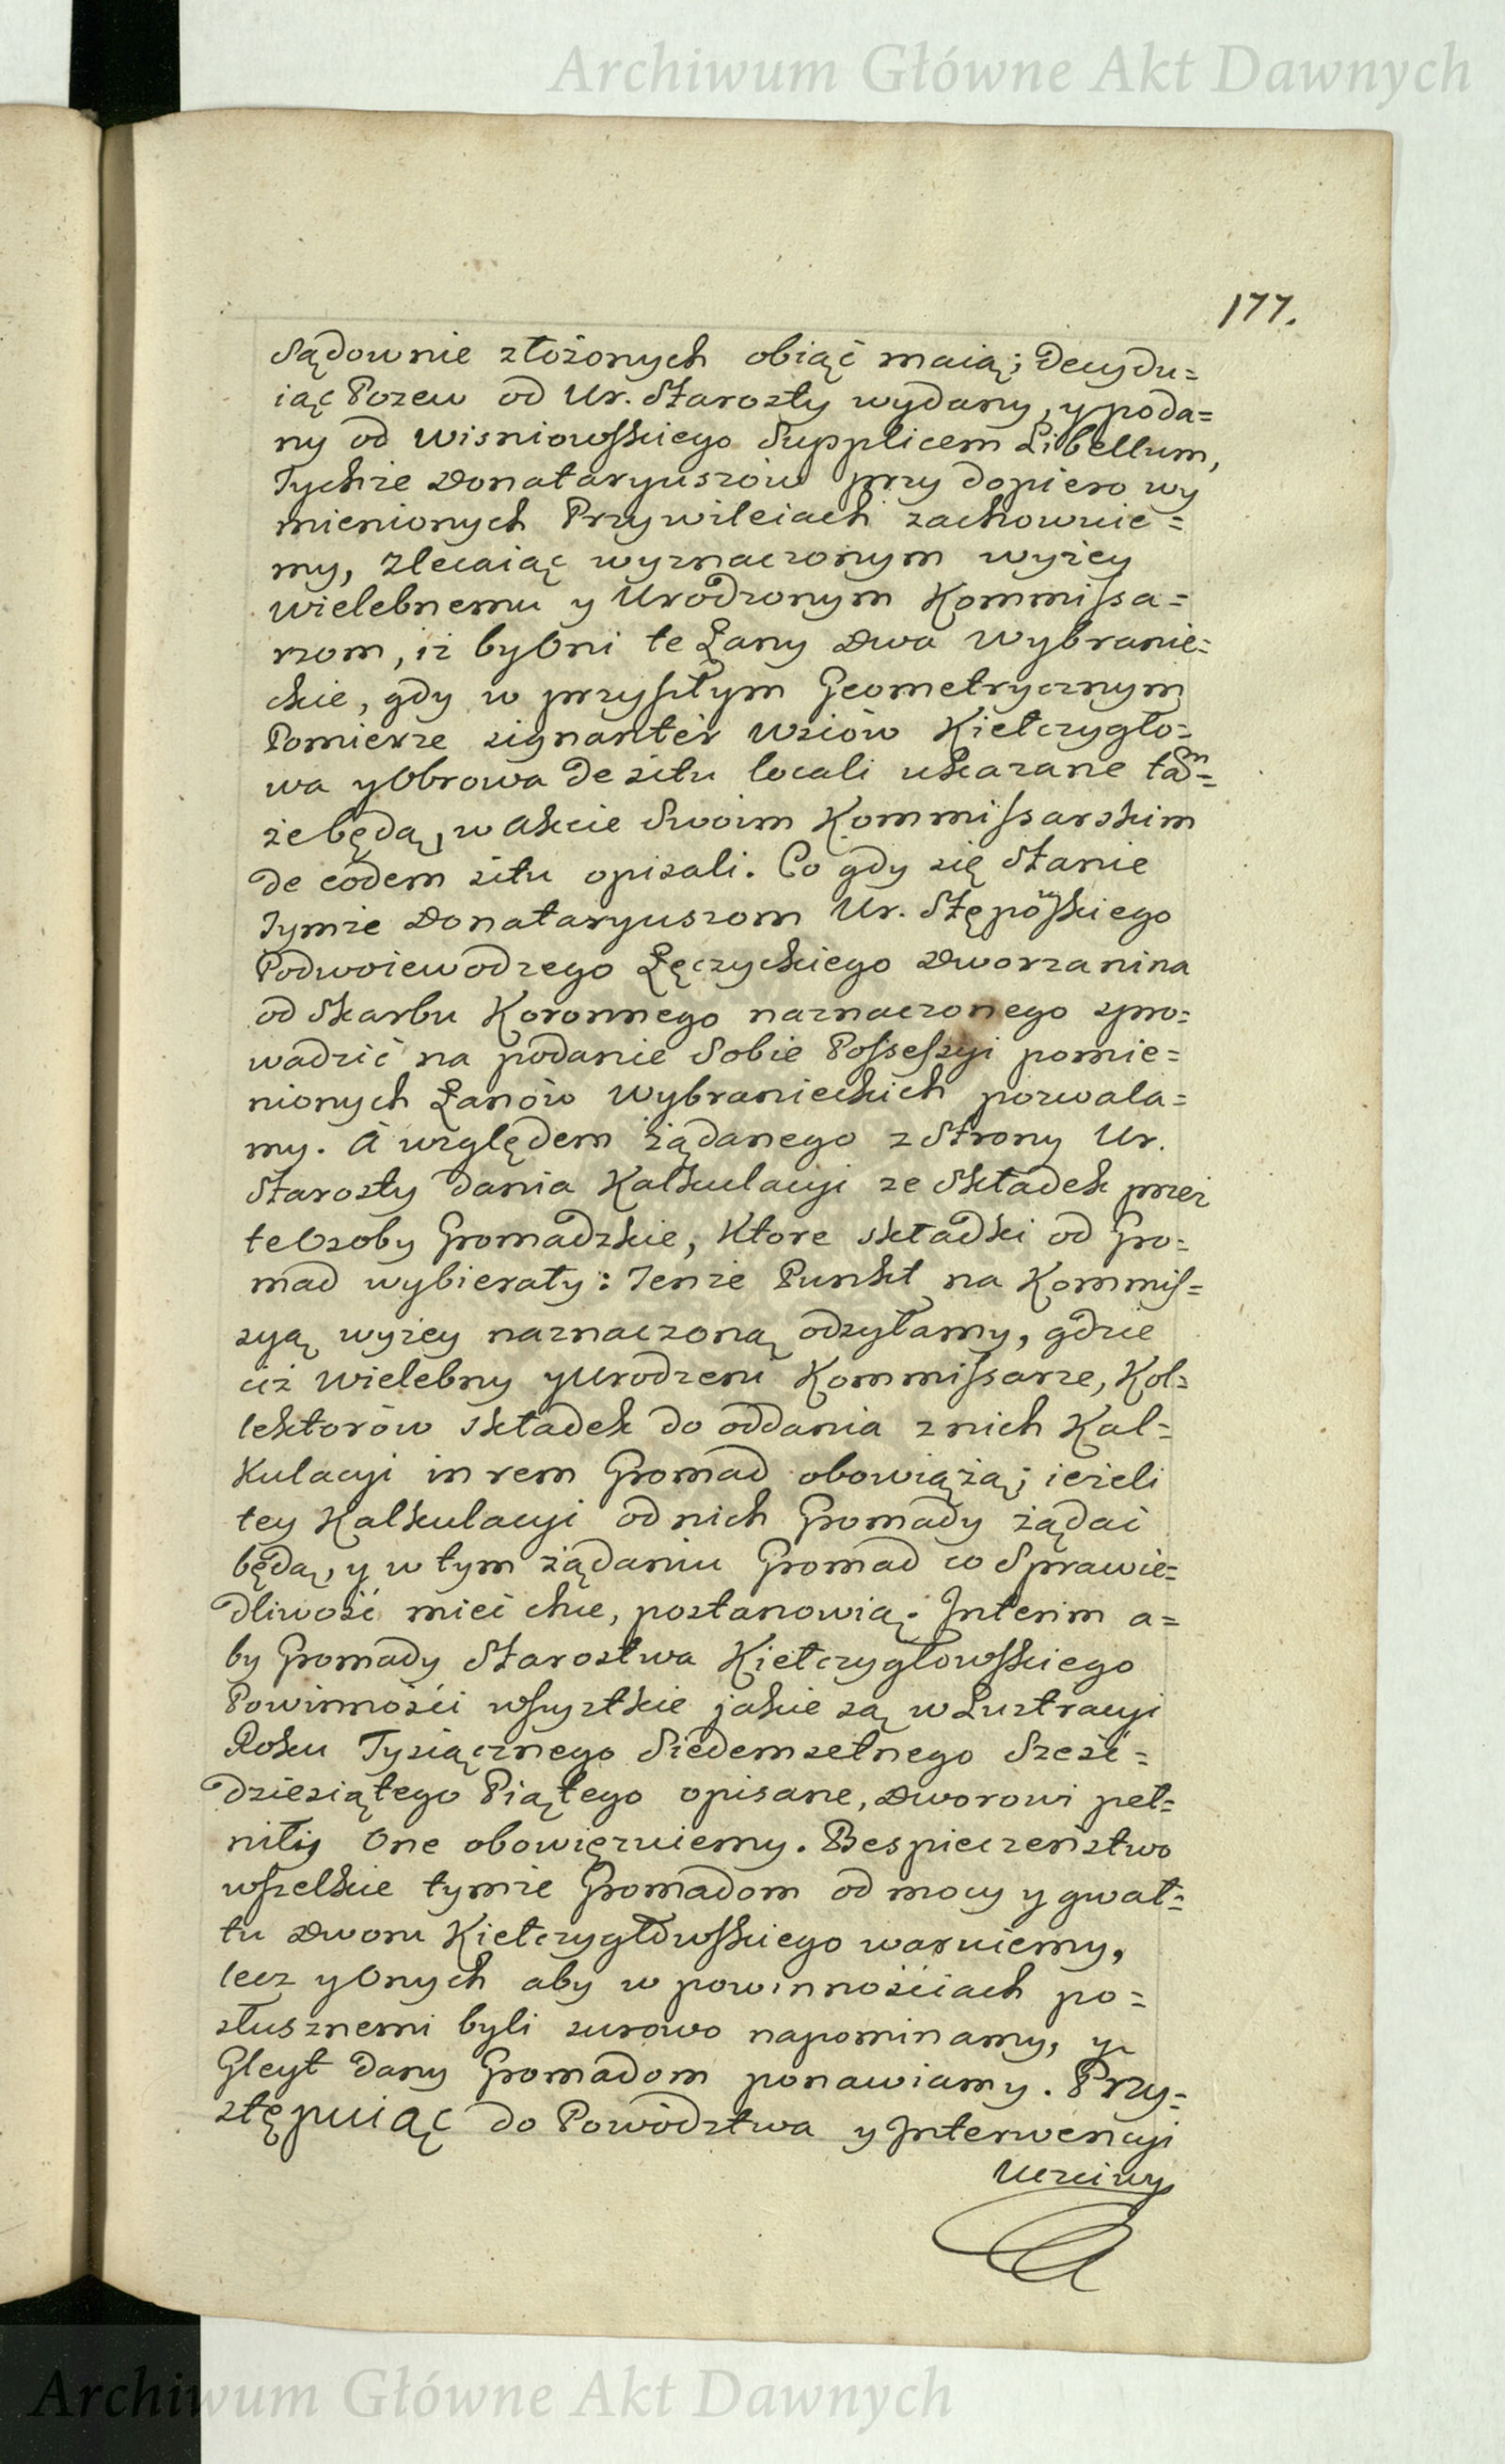 Archiwum Główne Akt Dawnych
177.
Sądownie złożonych obiąć maią; Decydu=
iąc Pozew od Ur. Starosty wydany, y poda=
ny od Wisniowskiego Supplicem Libellum,
Tychże Donataryuszów przy dopiero wy
mienionych Przywileiach zachowuie=
my, Zlecaiąc wyznaczonym wyżey
Wielebnemu y Urodzonym Kommissa=
rzom, iż by Oni te Łany Dwa Wybranie=
ckie, gdy w przyszłym Geometrycznym
Pomierze signantèr Wsiów Kiełczygło=
wa y Obrowa de situ locali ukazane tãm=
że będą, w Akcie Swoim Kommissarskim
de eodem situ opisali. Co gdy się Stanie
Tymże Donataryuszom Ur. Stępowskiego
Podwoiewodzego Łęczyckiego Dworzanina
od Skarbu Koronnego naznaczonego spro=
wadzić na podanie Sobie Possessyi pomie=
nionych Łanów Wybranieckich pozwala=
my. A względem żądanego z Strony Ur.
Starosty dania Kalkulacyi ze Składek przez
te Osoby Gromadzkie, Ktore składki od Gro=
mad wybierały: Tenże Punkt na Kommis=
syą wyżey naznaczoną odsyłamy, gdzie
ciż Wielebny y Urodzeni Kommissarze, Kol=
lektorów składek do oddania z nich Kal=
kulacyi in rem Gromad obowiążą; ieżeli
tey Kalkulacyi od nich Gromady żądać
będą, y w tym żądaniu Gromad co Sprawie=
dliwość mieć chce, postanowią. Interim a=
by Gromady Starostwa Kiełczygłowskiego
Powinności wszystkie jakie są w Lustracyi
Roku Tysiącznego Siedemsetnego Sześć=
dziesiątego Piątego opisane, Dworowi peł=
niły One obowięzuiemy. Bespieczeństwo
wszelkie tymże Gromadom od mocy y gwał=
tu Dworu Kiełczygłowskiego waruiemy,
lecz y Onych aby w powinnościach po=
słusznemi byli surowo napominamy, y
Gleyt dany Gromadom ponawiamy. Przy=
stępuiąc do Powództwa y Interwencyi
Uczciwy
Archiwum Główne Akt Dawnych